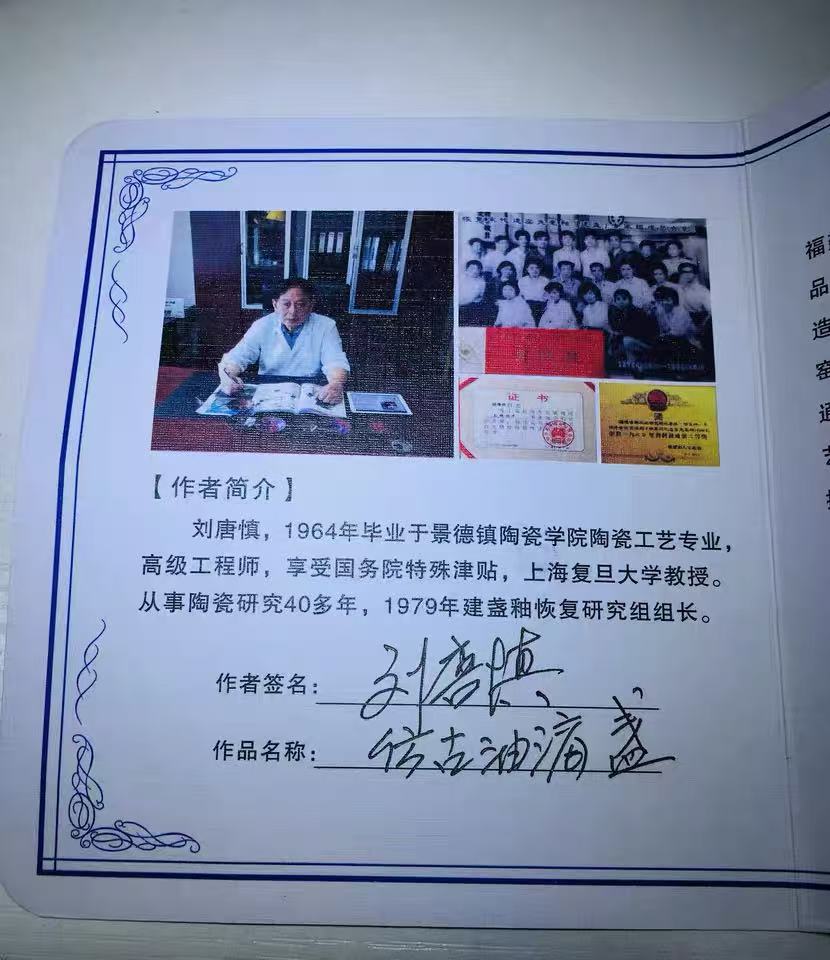 证书
【作者简介】
刘唐慎，1964年毕业于景德镇陶瓷学院陶瓷工艺专业，
高级工程师，享受国务院特殊津贴，上海复旦大学教授。
从事陶瓷研究40多年，1979年建盏釉恢复研究组组长。
作者签名：刘唐慎
作品名称：仿古油滴盏
福
品
造
窑
通
艺